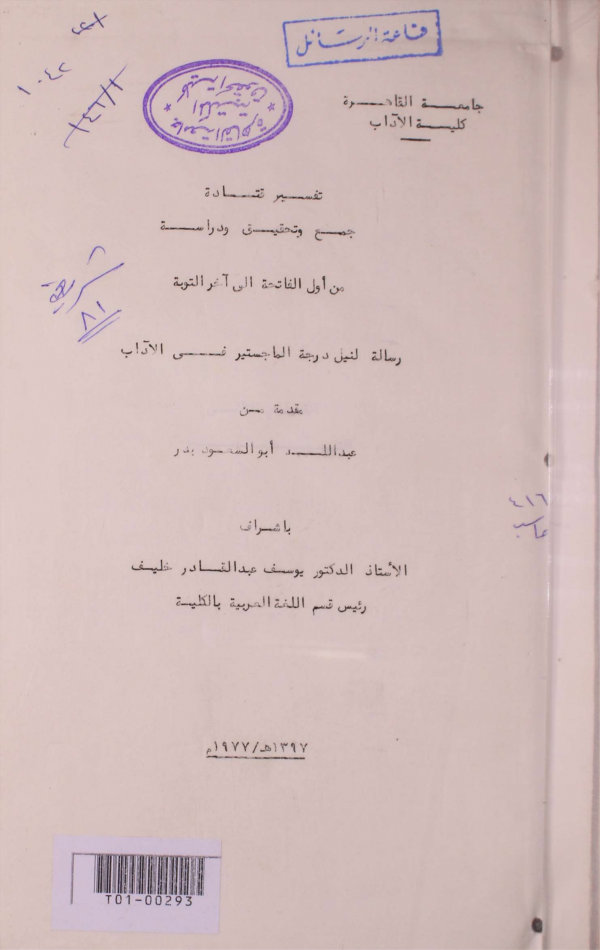 قاعة الرسائل
جامعة القاهرة
كلية الآداب
١٠٤٢
تفسير قتادة
جمع وتحقيق ودراسة
من أول الفاتحة الى آخر التوبة
رسالة لنيل درجة الماجستير فى الآداب
مقدمة من
عبدالله أبو السعود بدر
باشراف
الأستاذ الدكتور يوسف عبدالقادر خليف
رئيس قسم اللغة العربية بالكلية
٨١
٤١٦
١٣٩٧هـ/١٩٧٧م
T01-00293